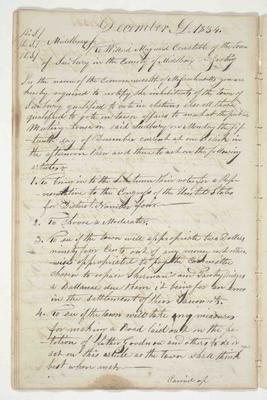 December D. 1834.
Middlesex ss
To Willard Maynard Constable of the Town
of Sudbury in the County of Middlesex Greeting
In the name of the Commonwealth of Massachusetts you are
hereby required to notify the inhabitants of the town of
Sudbury qualified to vote in elections also all those
qualified to vote in town affairs to meet at the
Meeting House in said Sudbury on Monday the
day of December current at one o'clock in
the afternoon then and there to act on the following
articles
1. To bring in to the Selectmen their votes for a Rep-
resentative to the Congress of the United States
for District Number four
2. To Choose a Moderator.
3. To see if the town will appropriate two Dollars
ninety four Cts to said money not other-
wise appropriated to pay the Committee
chosen to repair Sherman's and Bridges
a Ballance due them it being for an error
in the settlement of their accounts.
4. To see if the town will take any measures
for making a Road laid out on the pe-
tition of Luther Goodnow and others to do or
act on this article as the town shall think
best when met
Carried up